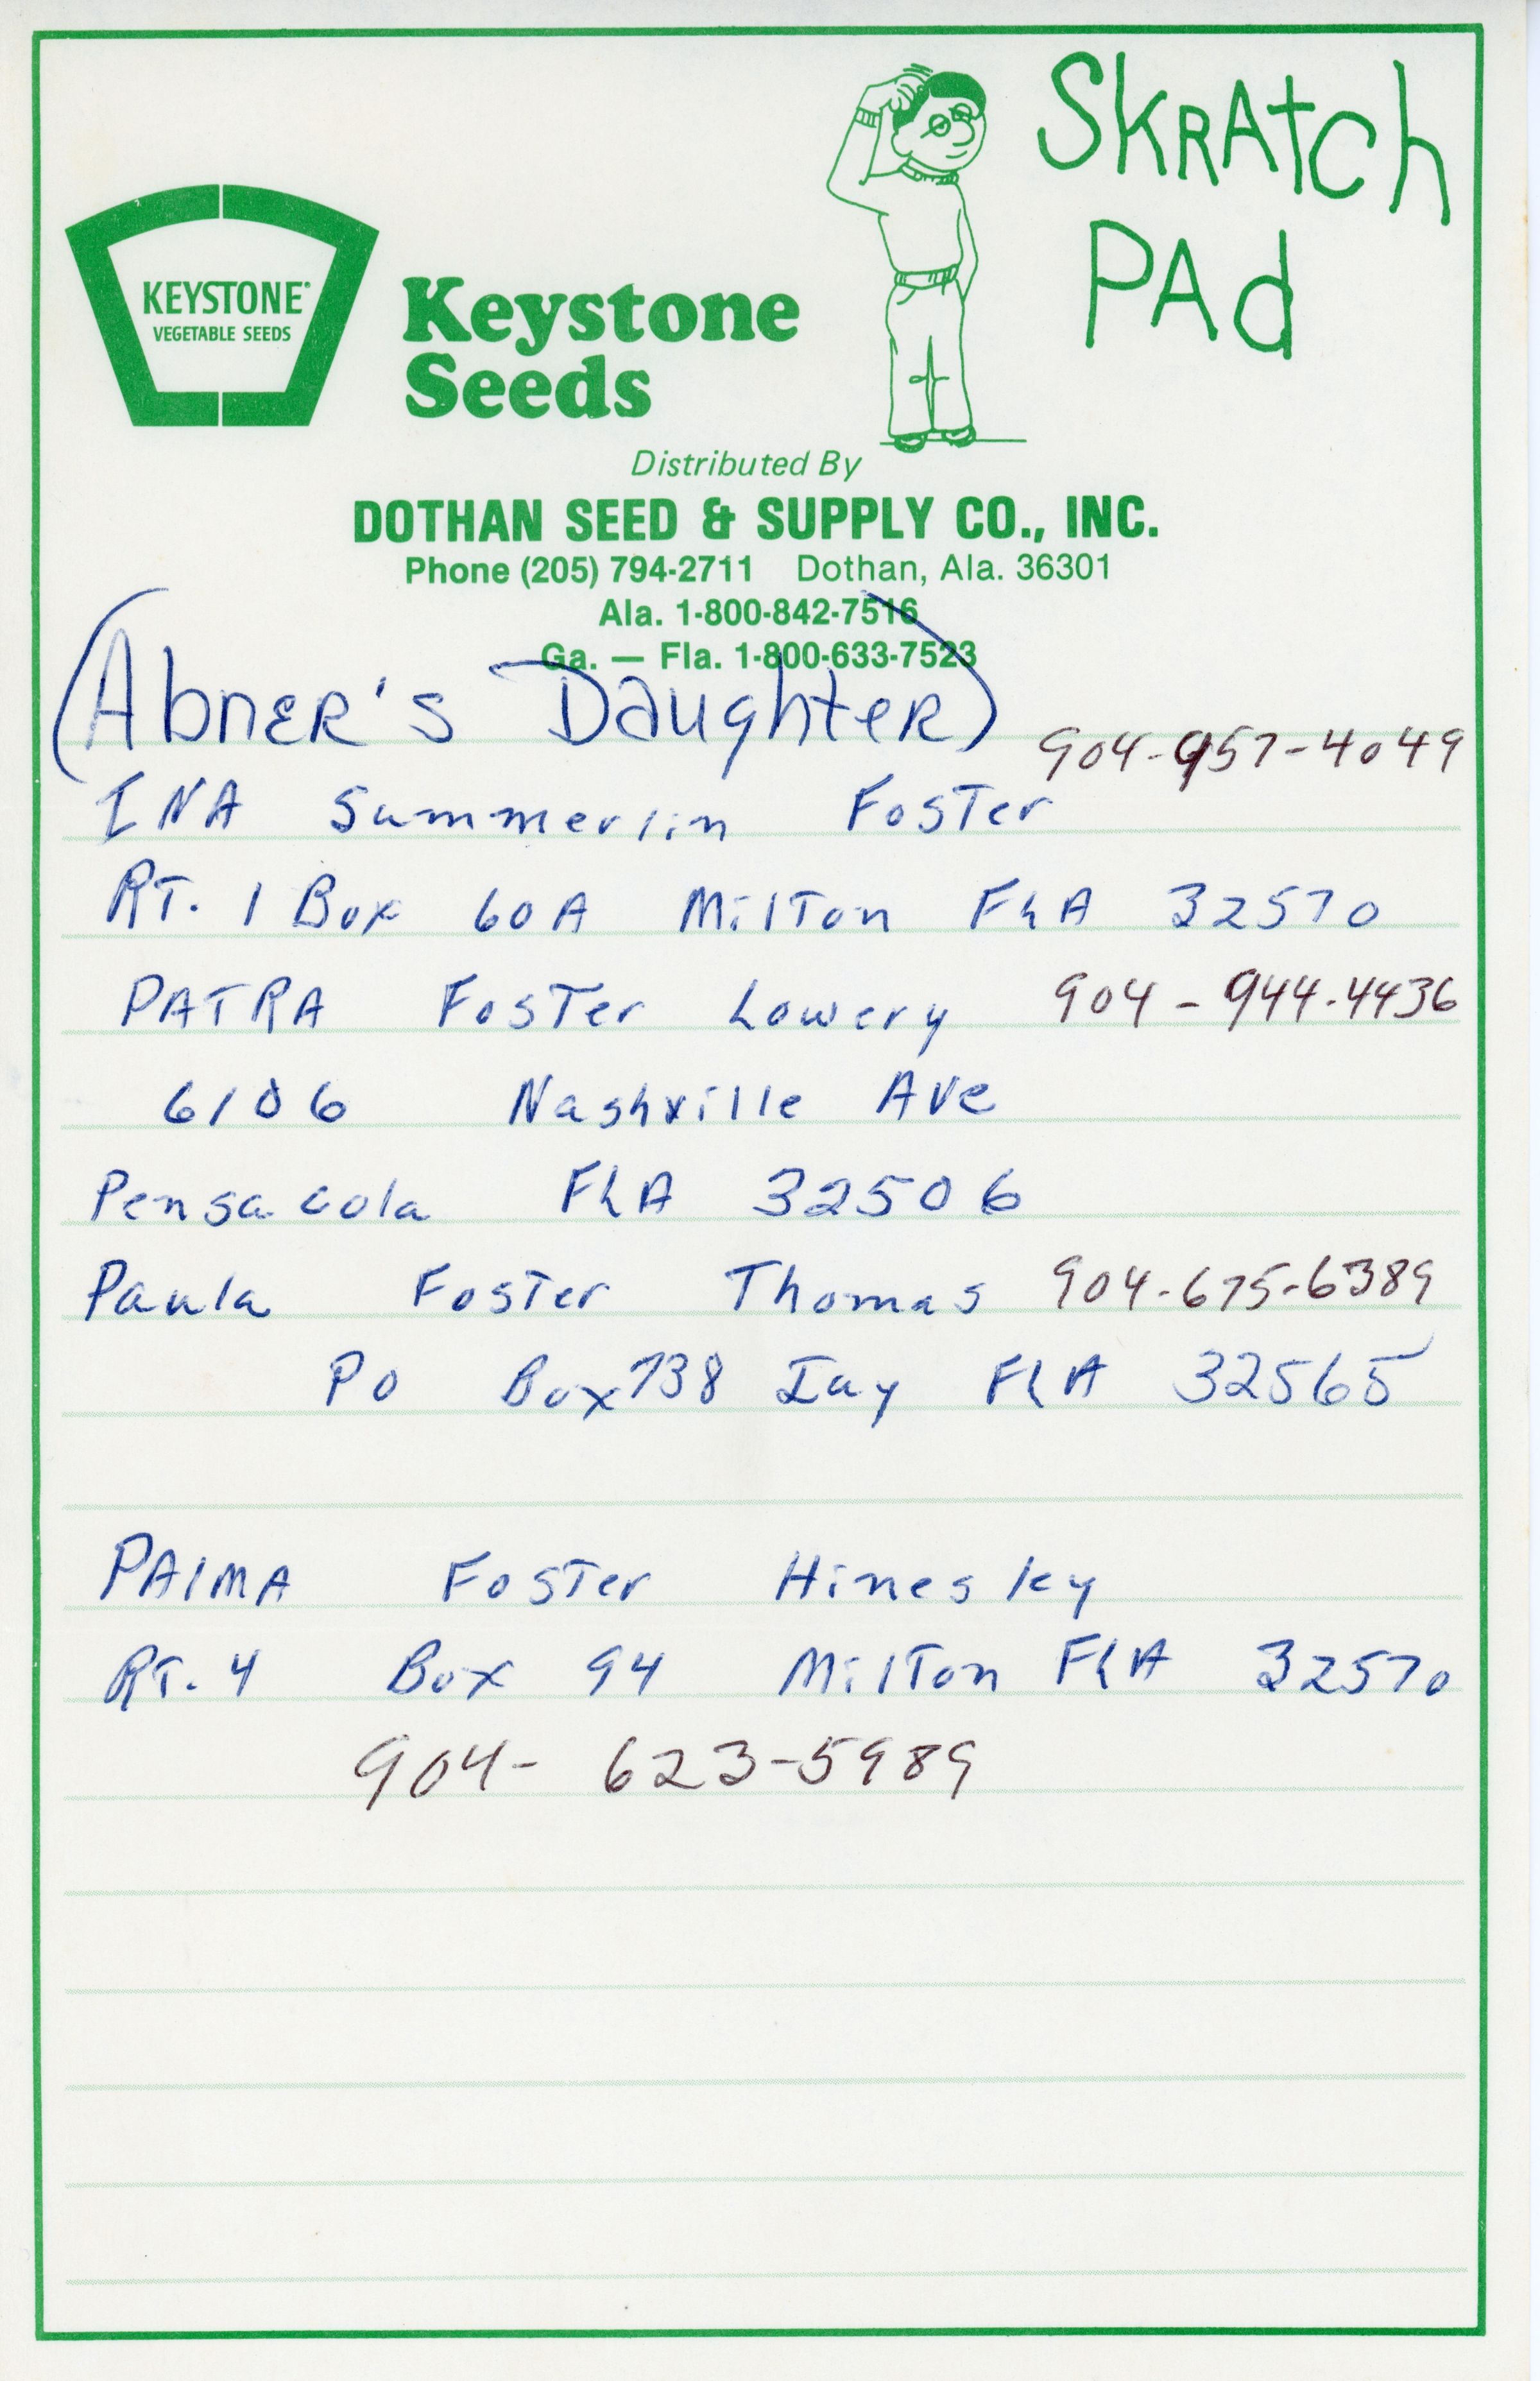 SKRAtch
PAd
KEYSTONE
VEGETABLE SEEDS
Keystone
Seeds
Distributed By
DOTHAN SEED & SUPPLY CO., INC.
Phone (205) 794-2711 Dothan, Ala. 36301
Ala. 1-800-842-7516
Ga. — Fla. 1-800-633-7523
(Abner's Daughter)
904-957-4049
INA Summerlin Foster
RT. 1 Box 60A Milton FLA 32570
PATRA Foster Lowery 904-944-4436
6106 Nashville Ave
Pensacola FLA 32506
Paula Foster Thomas 904-675-6389
PO Box 738 Jay FLA 32565
PAlMA Foster Hinesley
RT. 4 Box 94 Milton FLA 32570
904-623-5989